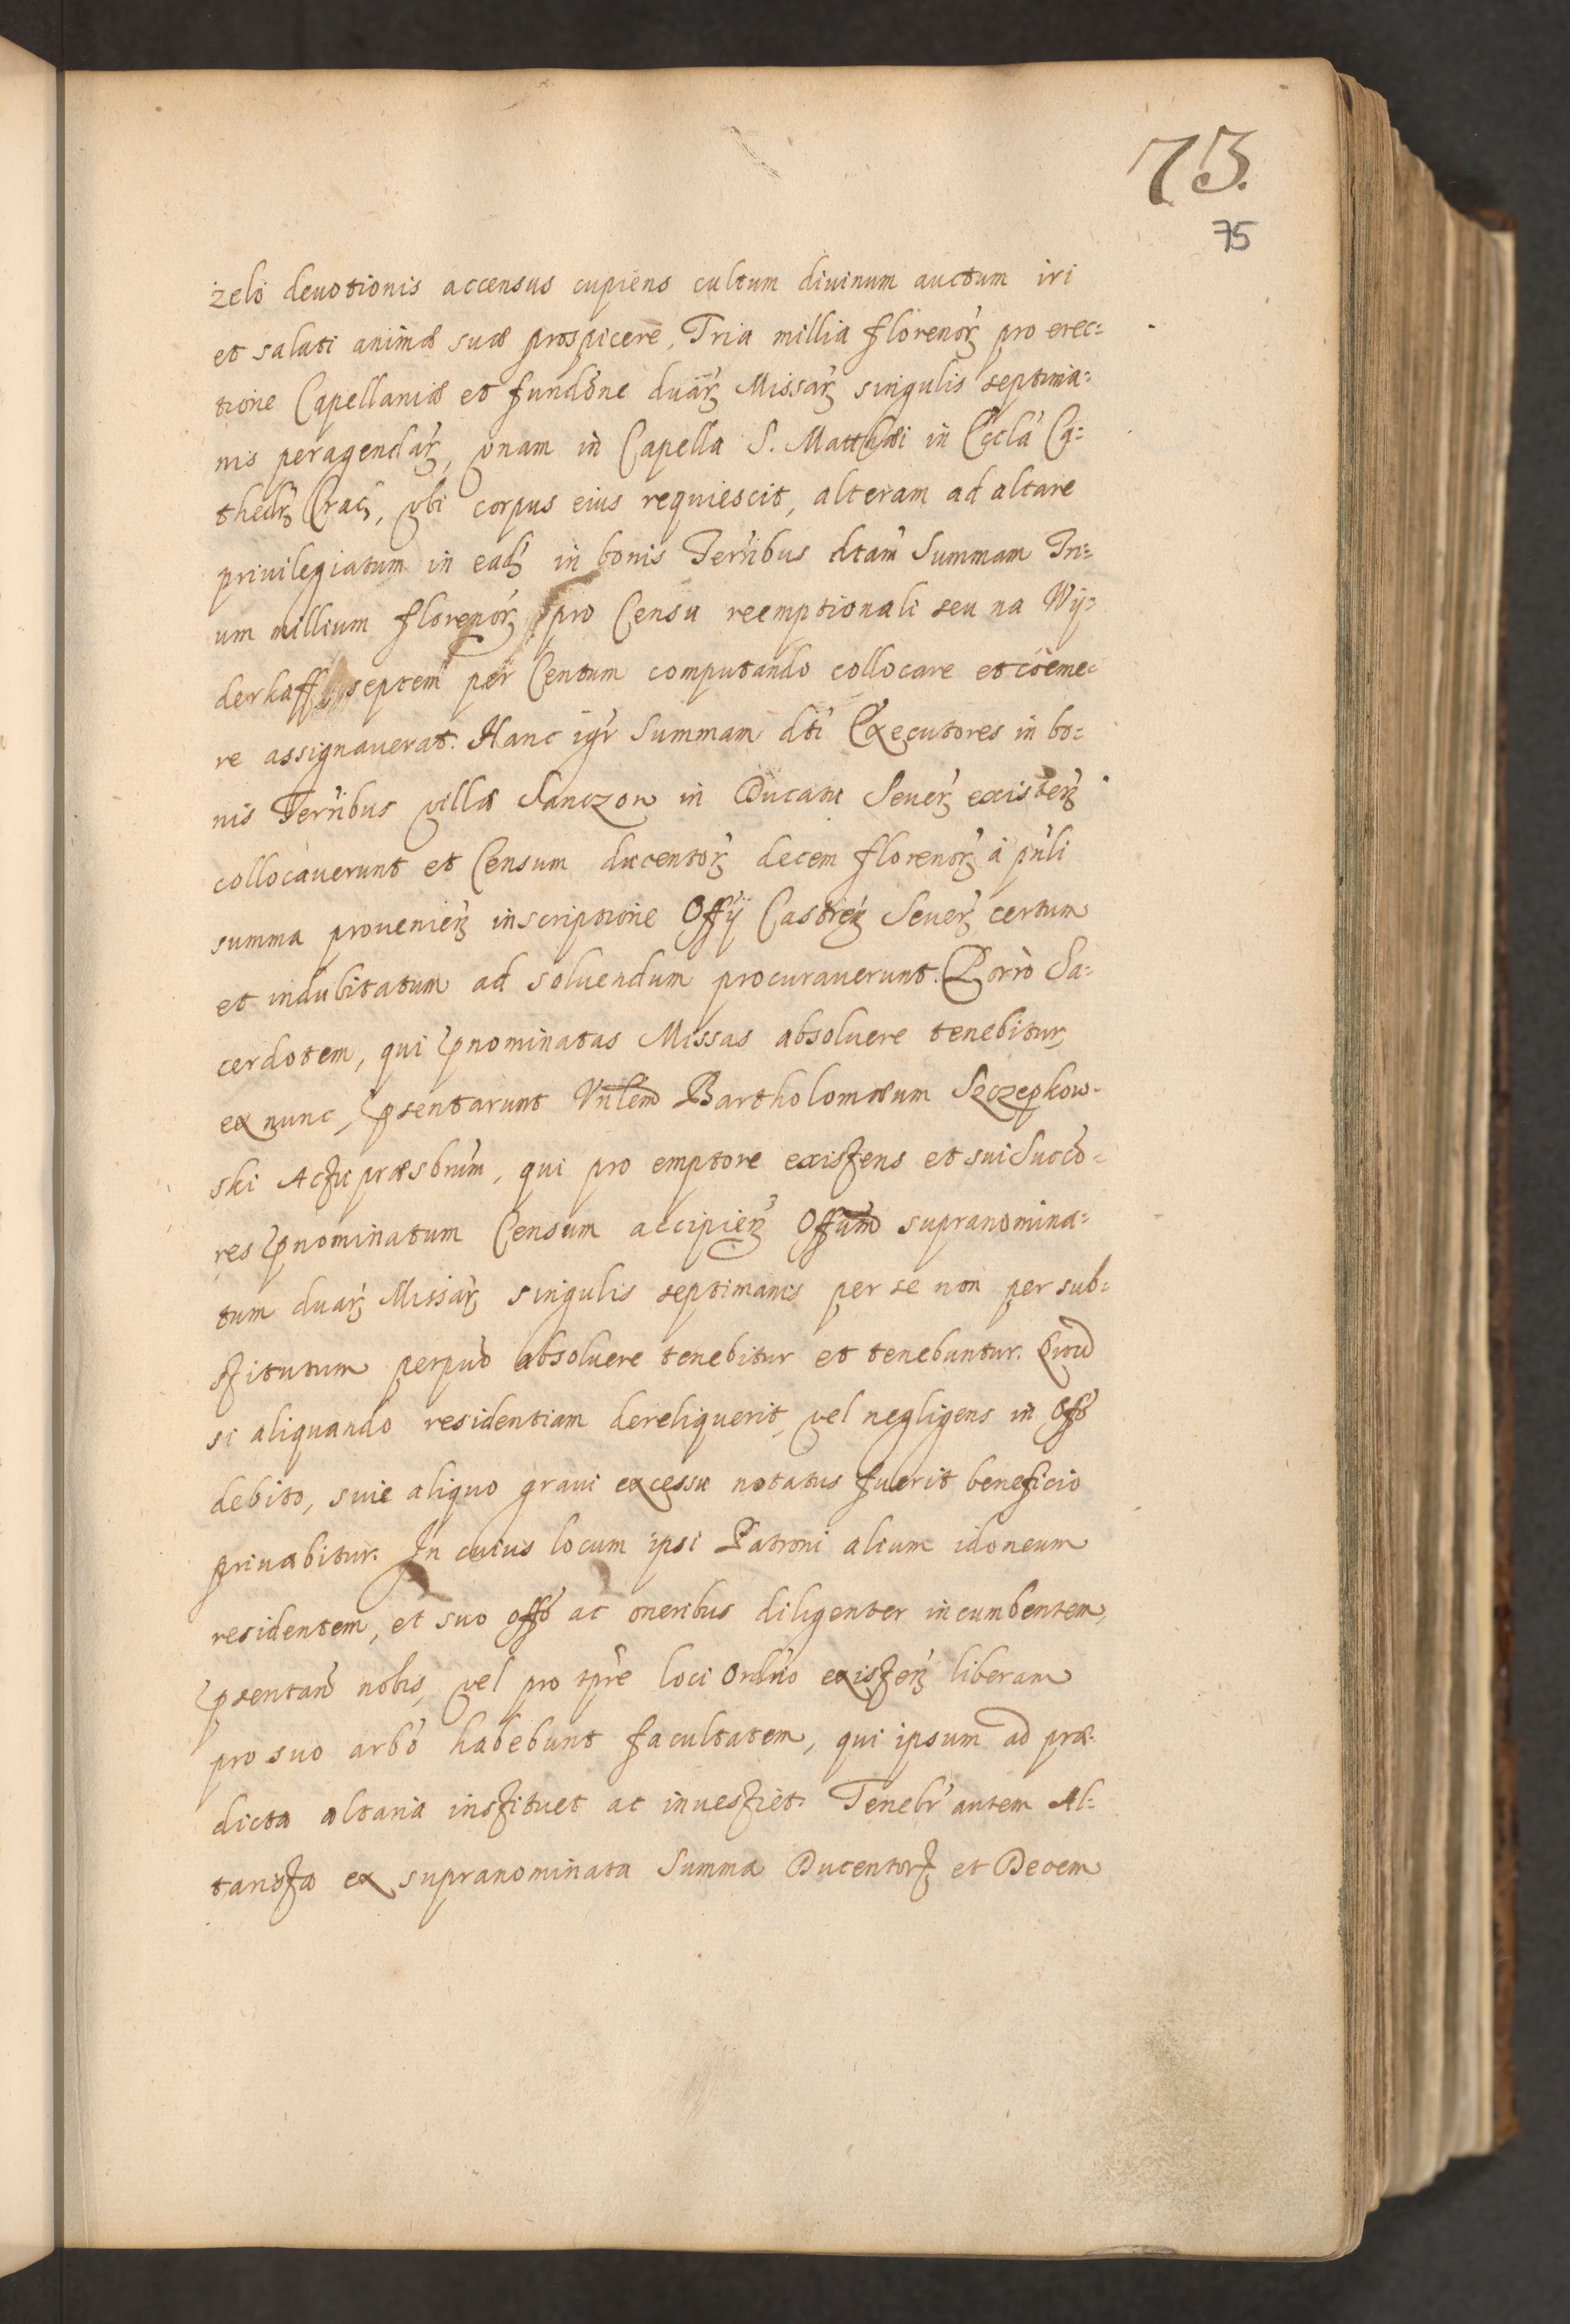 73.
75
zelo deuotionis accensus cupiens cultum diuinum auctum iri
et saluti animæ suæ prospicere, Tria millia florenorꝫ pro erec=
tione Capellaniæ et fundōne duarꝫ Missarꝫ singulis septima=
nis peragendarꝫ, vnam in Capella S. Matthæi in Eccla Ca=
thedrꝫ Cracꝫ, vbi corpus eius requiescit, alteram ad altare
priuilegiatum in eadꝫ in bonis Terrībus dtam Summam Tri=
um millium florenorꝫ pro Censu reemptionali seu na Wÿ=
derkaff septem per Centum computando collocare et cōeme=
re assignauerat. Hanc igr Summam dti Executores in bo=
nis Terribus villæ Sanczow in Ducatu Seuerꝫ existenꝫ
collocauerunt et Censum ducentorꝫ decem florenorꝫ à pn̄li
summa prouenienꝫ inscriptione Offÿ Castrenꝫ Seuerꝫ certum
et indubitatum ad soluendum procurauerunt. Porrò Sa=
cerdotem, qui p̄nominatas Missas absoluere tenebitur,
ex nunc, p̄sentarunt Vnlem Bartholomæum Sczepkow=
ski Actu præsbrum, qui pro emptore existens et sui Succo=
res p̄nominatum Censum accipienꝫ Offum supranomina=
tum duarꝫ Missarꝫ singulis septimanis per se non per sub=
stitutum perpuo absoluere tenebitur et tenebuntur. Quod
si aliquando residentiam dereliquerit, vel negligens in Offo
debito, siue aliquo graui excessu notatus fuerit beneficio
priuabitur. In cuius locum ipsi Patroni alium idoneum
residentem, et suo offo ac oneribus diligenter incumbentem,
p̄sentand nobis, vel pro tpre loci Ordrio existenꝫ liberam
pro suo arbo habebunt facultatem, qui ipsum ad præ=
dicta altaria instituet ac inuestiet. Tenebr autem Al=
tarista ex supranominata Summa Ducentorꝫ et Decem